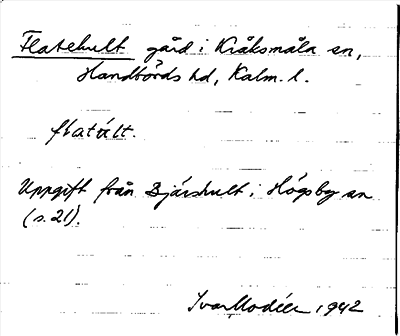 Flatehult gård i Kråksmåla sn,
Handbörds hd, Kalm. l.
flatúlt.
Uppgift från Bjärshult i Högsby sn
(s. 21).
Ivar Modéer 1942